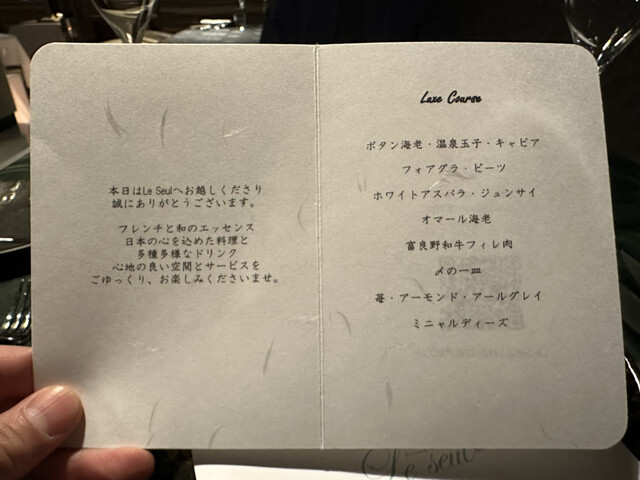 本日はLe Seulへお越しくださり
誠にありがとうございます。
フレンチと和のエッセンス
日本の心を込めた料理と
多種多様なドリンク
心地の良い空間とサービスを
ごゆっくり、お楽しみくださいませ。
Luxe Course
ボタン海老・温泉玉子・キャビア
フォアグラ・ビーツ
ホワイトアスパラ・ジュンサイ
オマール海老
富良野和牛フィレ肉
〆の一皿
苺・アーモンド・アールグレイ
ミニャルディーズ
Le seul